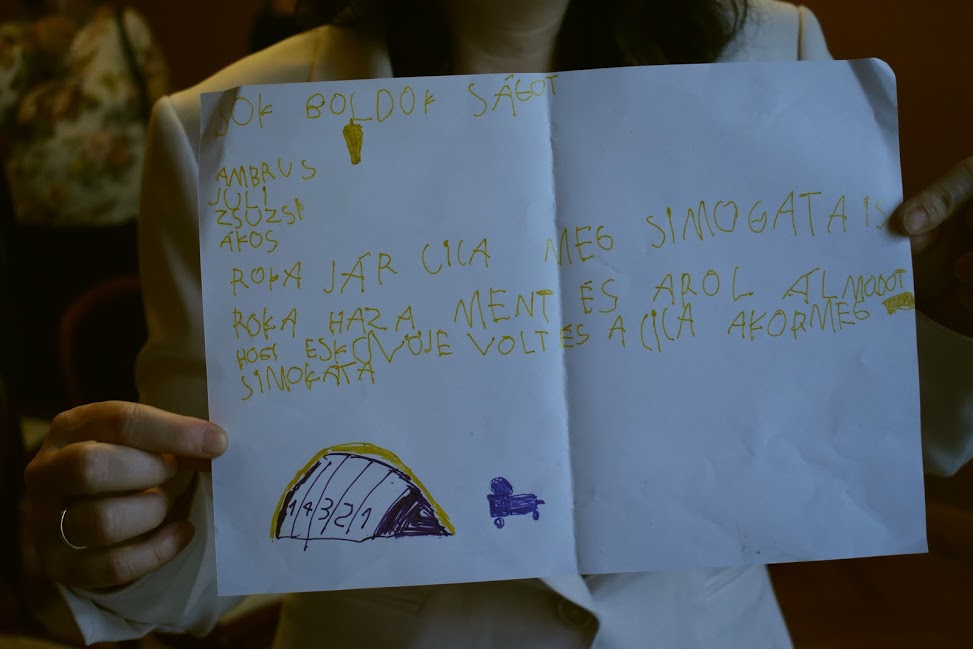 SOK BOLDOK SÁGOT
AMBRUS
JULI
ZSUZSI
ÁKOS
ROKA JÁR CICA MEG SIMOGATA IS
ROKA HAZA MENT ÉS AROL ÁLMODOT
HOGY ESKÜVŐJE VOLT ÉS A CICA AKORMEG
SIMOGATA
1 4 3 2 1